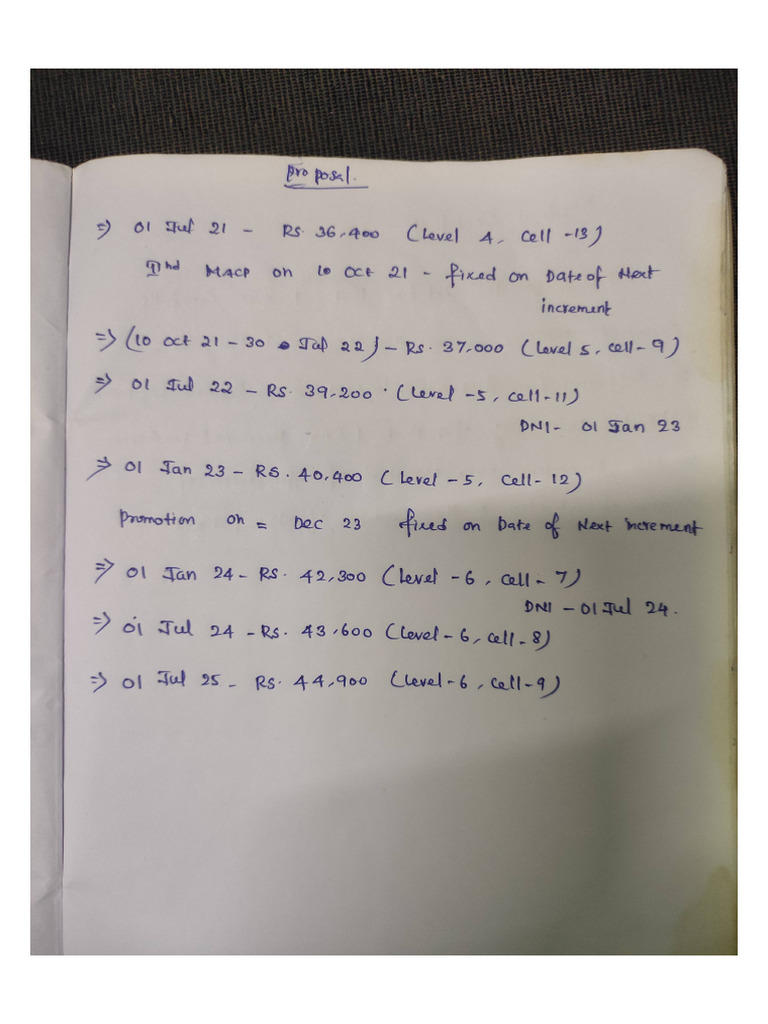 Proposal.
=> 01 Jul 21 - Rs. 36,400 (Level 4, Cell -13)
IInd MACP on 10 Oct 21 - fixed on Date of Next
increment
=> (10 Oct 21 - 30 Jul 22) - Rs. 37,000 (Level 5, Cell - 9)
=> 01 Jul 22 - Rs. 39,200 (Level -5, Cell -11)
DNI - 01 Jan 23
=> 01 Jan 23 - Rs. 40,400 (Level - 5, Cell - 12)
Promotion on = Dec 23 fixed on Date of Next increment
=> 01 Jan 24 - Rs. 42,300 (Level -6, Cell - 7)
DNI - 01 Jul 24.
=> 01 Jul 24 - Rs. 43,600 (Level - 6, Cell - 8)
=> 01 Jul 25 - Rs. 44,900 (Level - 6, Cell - 9)